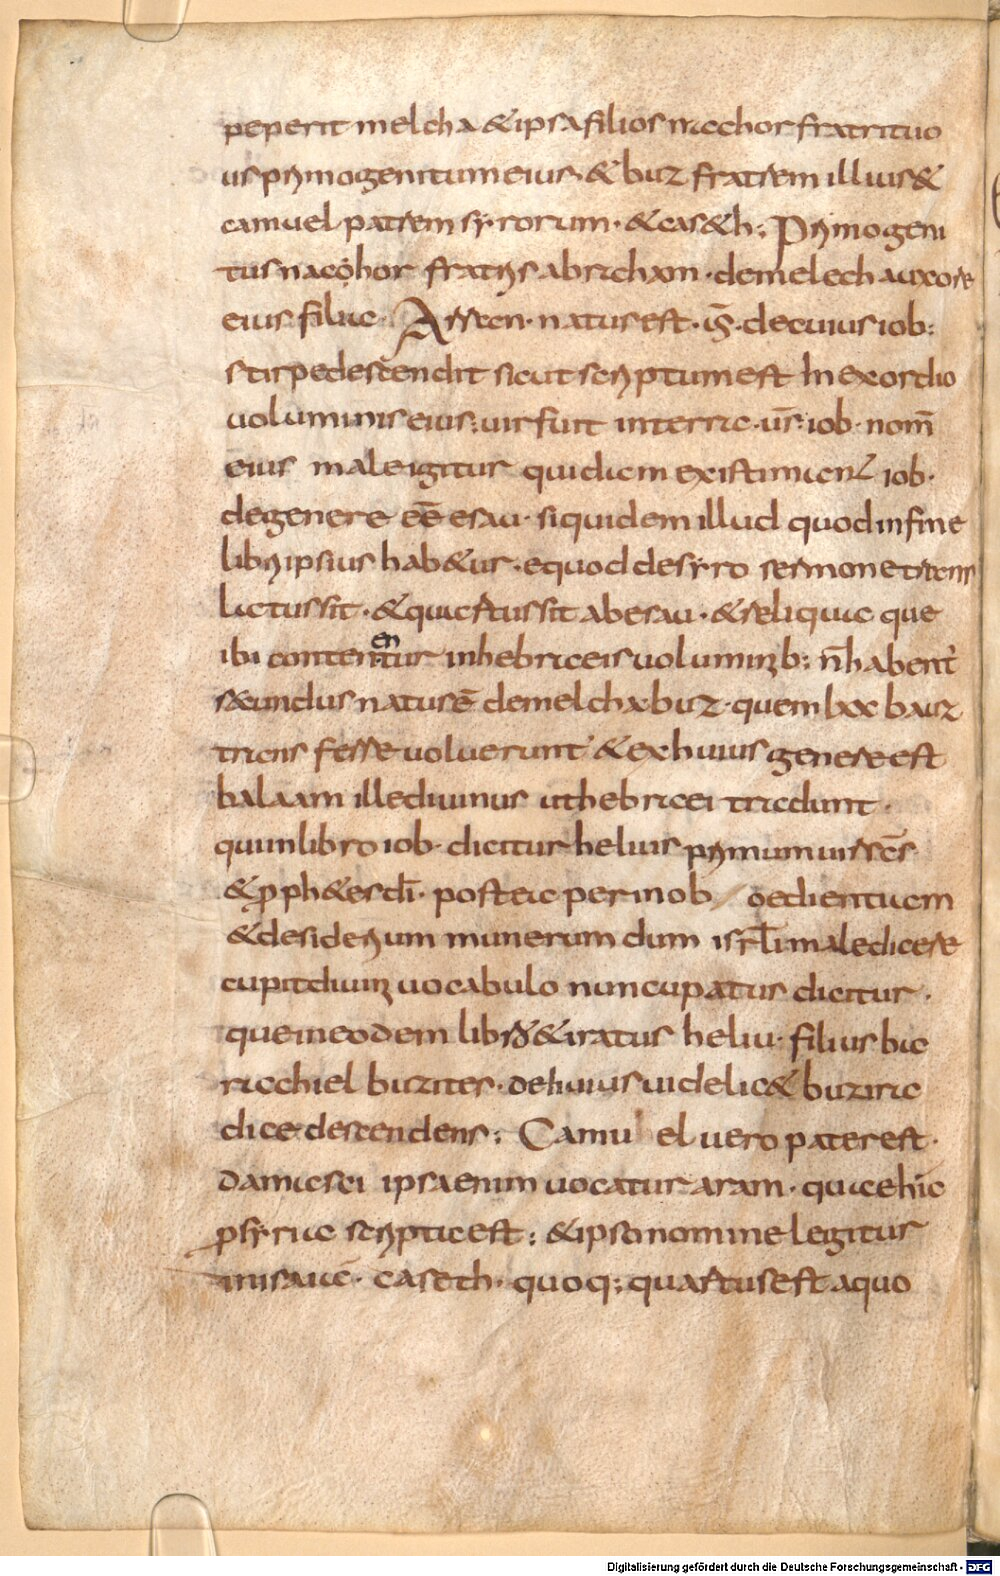 peperit melcha & ipsa filios nacchor fratri tuo
us primogenitum eius · & buz fratrem illius &
camuel patrem syrorum · & cas&h ; Primogeni
tus nacchor fratris abracham · de melcch a uxore
eius filia · Arfeon · natus est · us · de cuius iob :
stirpe descendit sicut scriptum est In exordio
uoluminis eius : uir fuit in terra · us · iob · nom̄
eius male igitur quidam existimant iob ·
de genere eē esau · siquidem illud quod in fine
libri ipsius hab&ur · e quod de syro sermone trans
latus sit · & quartus sit ab esau · & reliqua que
ibi contenentur in hebraeis uoluminib; n̄ habent᷑
s&undus natus ē de melcha buz · quem lxx bauz
trans ferre uoluerunt & ex huius genere est
balaam ille diuinus ut hebraei tradunt ·
qui in libro iob · dicitur heliu primum uir sc̄s
& pph&es dī · postea per inob oedientiam
& desiderium munerum dum isrl̄ī maledicere
cupit diuini uocabulo nuncupatur dicitur ·
que in eodem libro & iratus heliu · filius ba
rachiel buzites · de huius uidelic& buzi ra
dice descendens ; Camu el uero pater est ·
damasci ipsa enim uocatur aram · qua e hic
p syria scripta est ; & ipso nomine legitur
in isaia · caseth · quoq; quartus est a quo
Digitalisierung gefördert durch die Deutsche Forschungsgemeinschaft - DFG